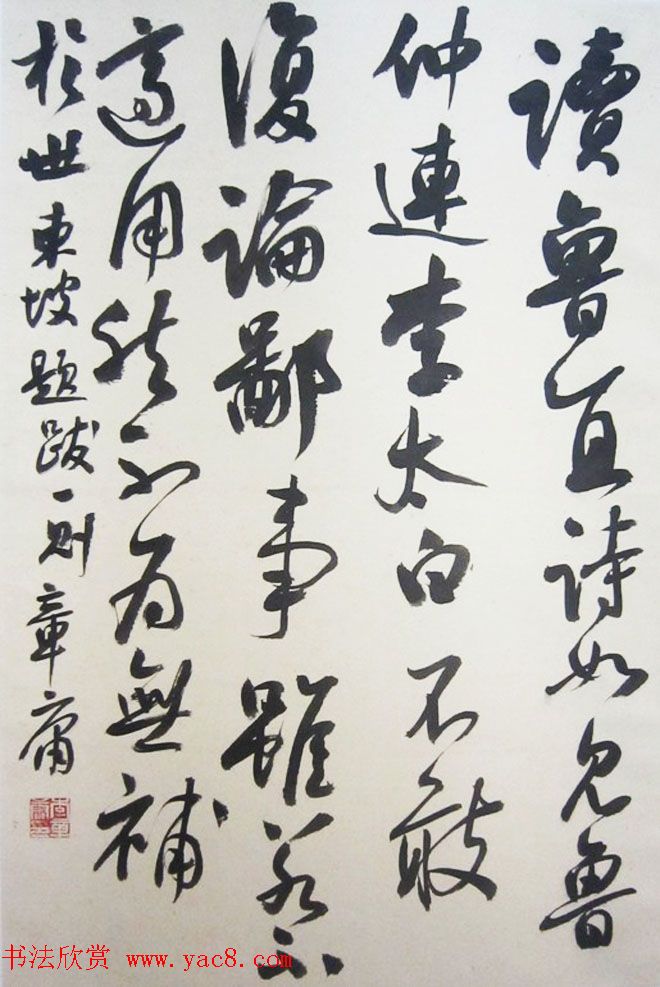 讀魯直詩如見魯
仲連李太白不敢
復論鄙事雖若不
適用然不為無補
於世東坡題跋一則章庸
书法欣赏 www.yac8.com